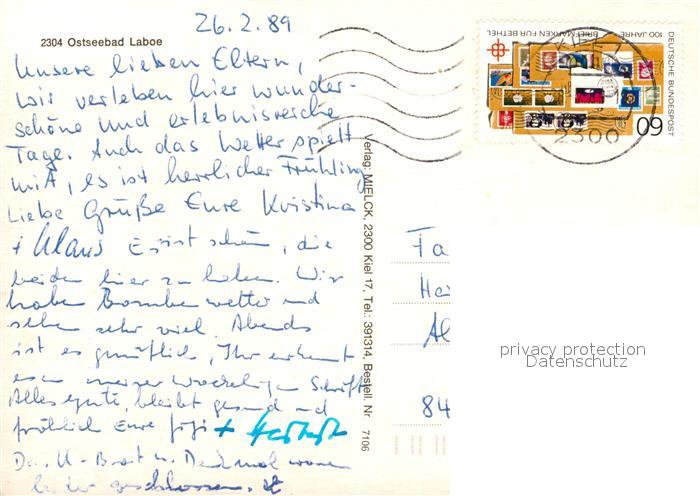 26.2.89
2304 Ostseebad Laboe
Unsere lieben Eltern,
wir verleben hier wunder-
schöne und erlebnisreiche
Tage. Auch das Wetter spielt
mit, es ist herrlicher Frühling
Liebe Grüße Eure Kristina
+ Klaus Es ist schön, die
beiden hier zu haben. Wir
haben Bombenwetter und
sehen sehr viel. Abends
ist es gemütlich, Ihr erkennt
es an meiner wackeligen Schrift
Alles gute, bleibt gesund und
fröhlich Eure
+ Herbert
Das U-Boot u. Denkmal waren
leider geschlossen.
Verlag: MIELCK, 2300 Kiel 17, Tel.: 391314, Bestell. Nr 7106
100 JAHRE BRIEFMARKEN FÜR BETHEL
DEUTSCHE BUNDESPOST
60
KIEL 1
2300
Fa
He
Al
84
privacy protection
Datenschutz